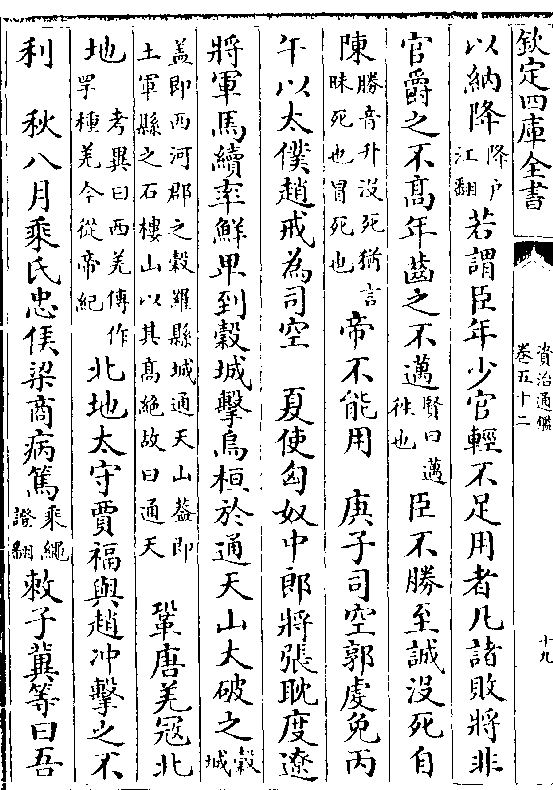 欽定四庫全書
資治通鑑
卷五十二
十九
以納降降户江翻若謂臣年少官輕不足用者凡諸敗將非
官爵之不髙年齒之不邁賢曰邁徃也臣不勝至誠没死自
陳勝音升没死猶言昧死也冒死也帝不能用 庚子司空郭虔免丙
午以太僕趙戒為司空 夏使匈奴中郎將張耽度遼
將軍馬續率鮮卑到榖城擊烏桓於通天山大破之榖城
盖即西河郡之榖羅縣城通天山蓋即土軍縣之石樓山以其髙絶故曰通天 鞏唐羌冦北
地考異曰西羌傳作罕種羌今從帝紀北地太守賈福與趙冲擊之不
利 秋八月乘氏忠侯梁商病篤乘繩證翻敕子冀等曰吾